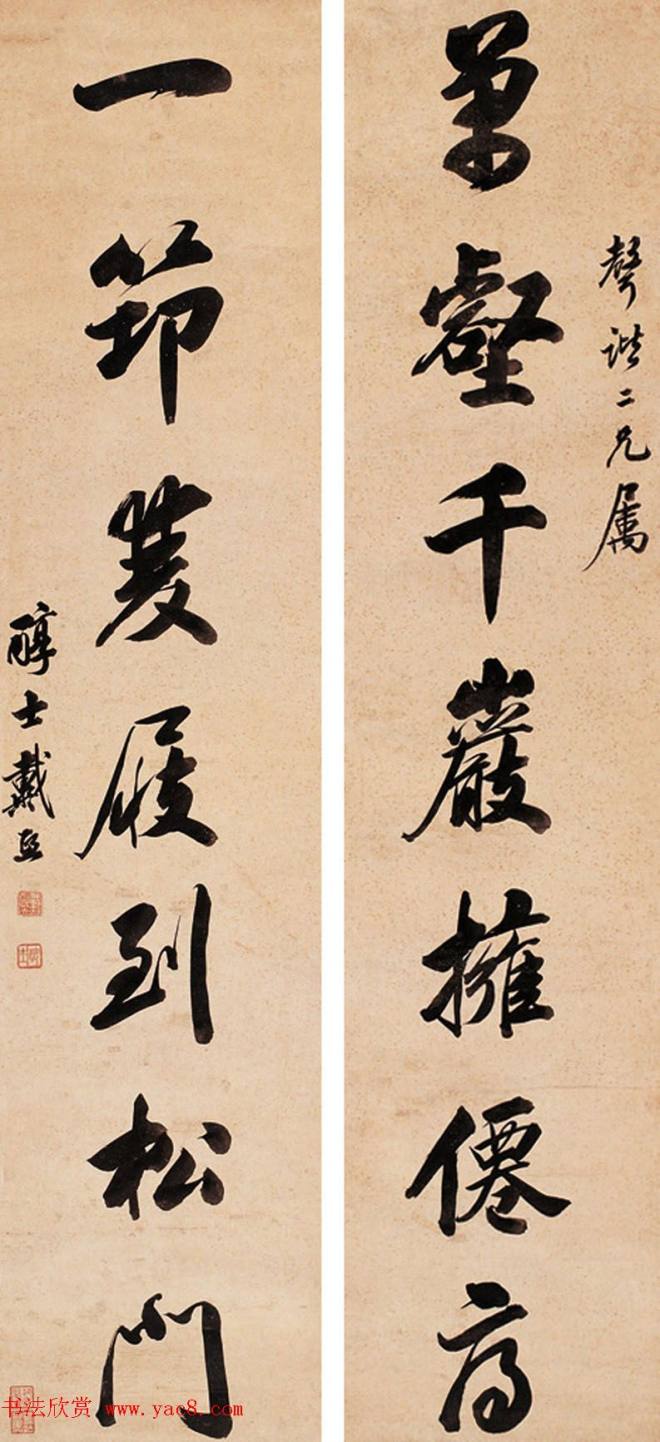 聲諧二兄屬
萬壑千巖擁僊
一筇雙屐到松門
醇士戴熙
书法欣赏 www.yac8.com